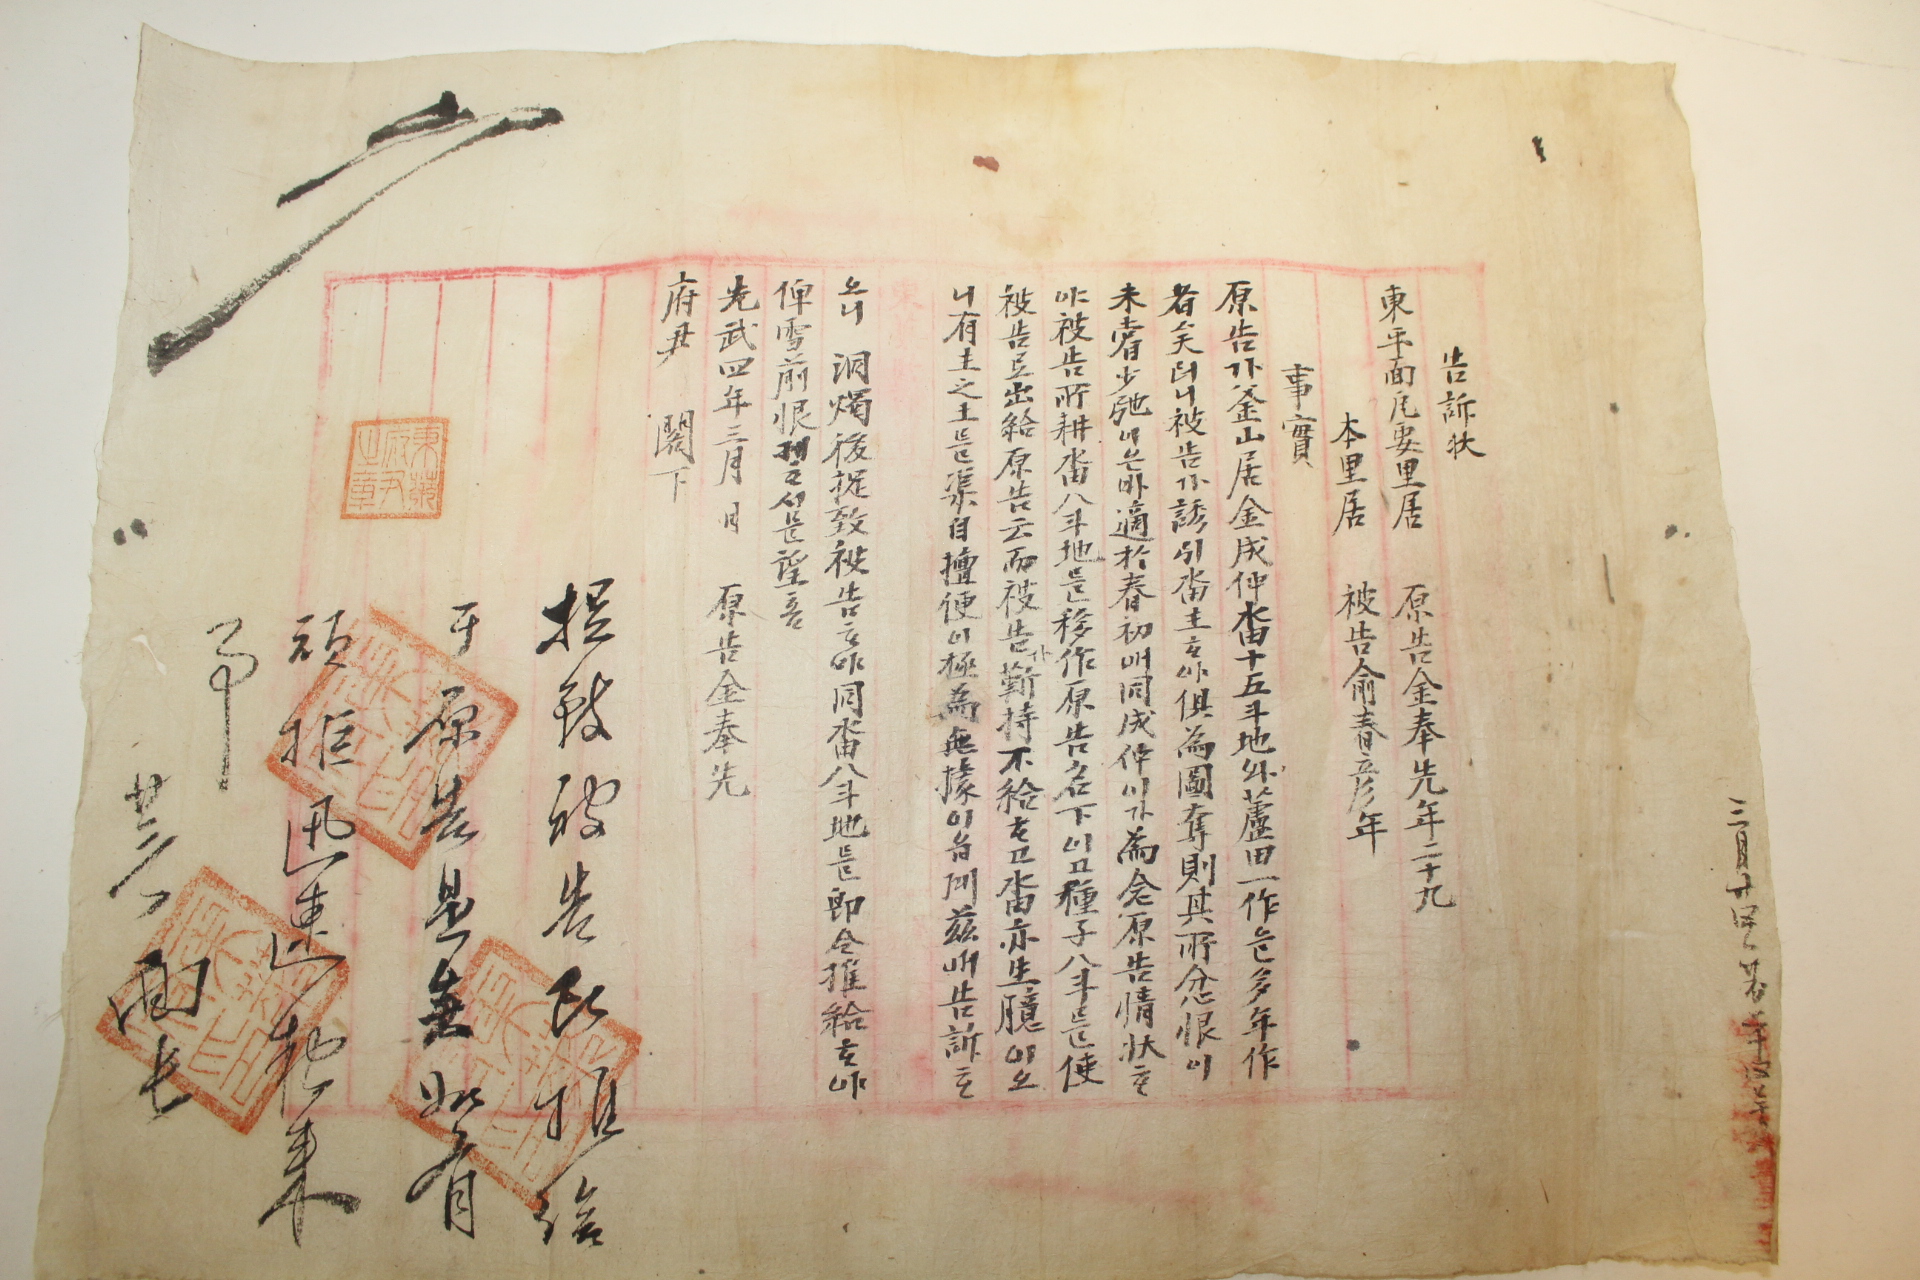 告訴狀
東平面凡要里居 原告金奉先年二十九
本里居 被告俞春彦年
事實
原告가釜山居金成仲畓十五斗地外蘆田一作을多年作
者矣러니被告가誘引畓主하야俱為圖奪則其所忿恨이
未嘗少弛이온바適於春初에同成仲이가為念原告情狀하
야被告所耕畓八斗地를移作原告名下이고種子八斗를使
被告로出給原告云而被告가靳持不給하고畓亦生臆이오
니有主之土를渠自擅便이極為無據이옵기玆에告訴하
오니 洞燭後捉致被告하야同畓八斗地를即令推給하야
俾雪前恨케하심을望홈
光武四年三月 日 原告金奉先
府尹 閣下
東萊府尹之章
捉致被告以推給
于原告是矣如有
頑拒迅速抱來
事
廿四 面長
三月廿四